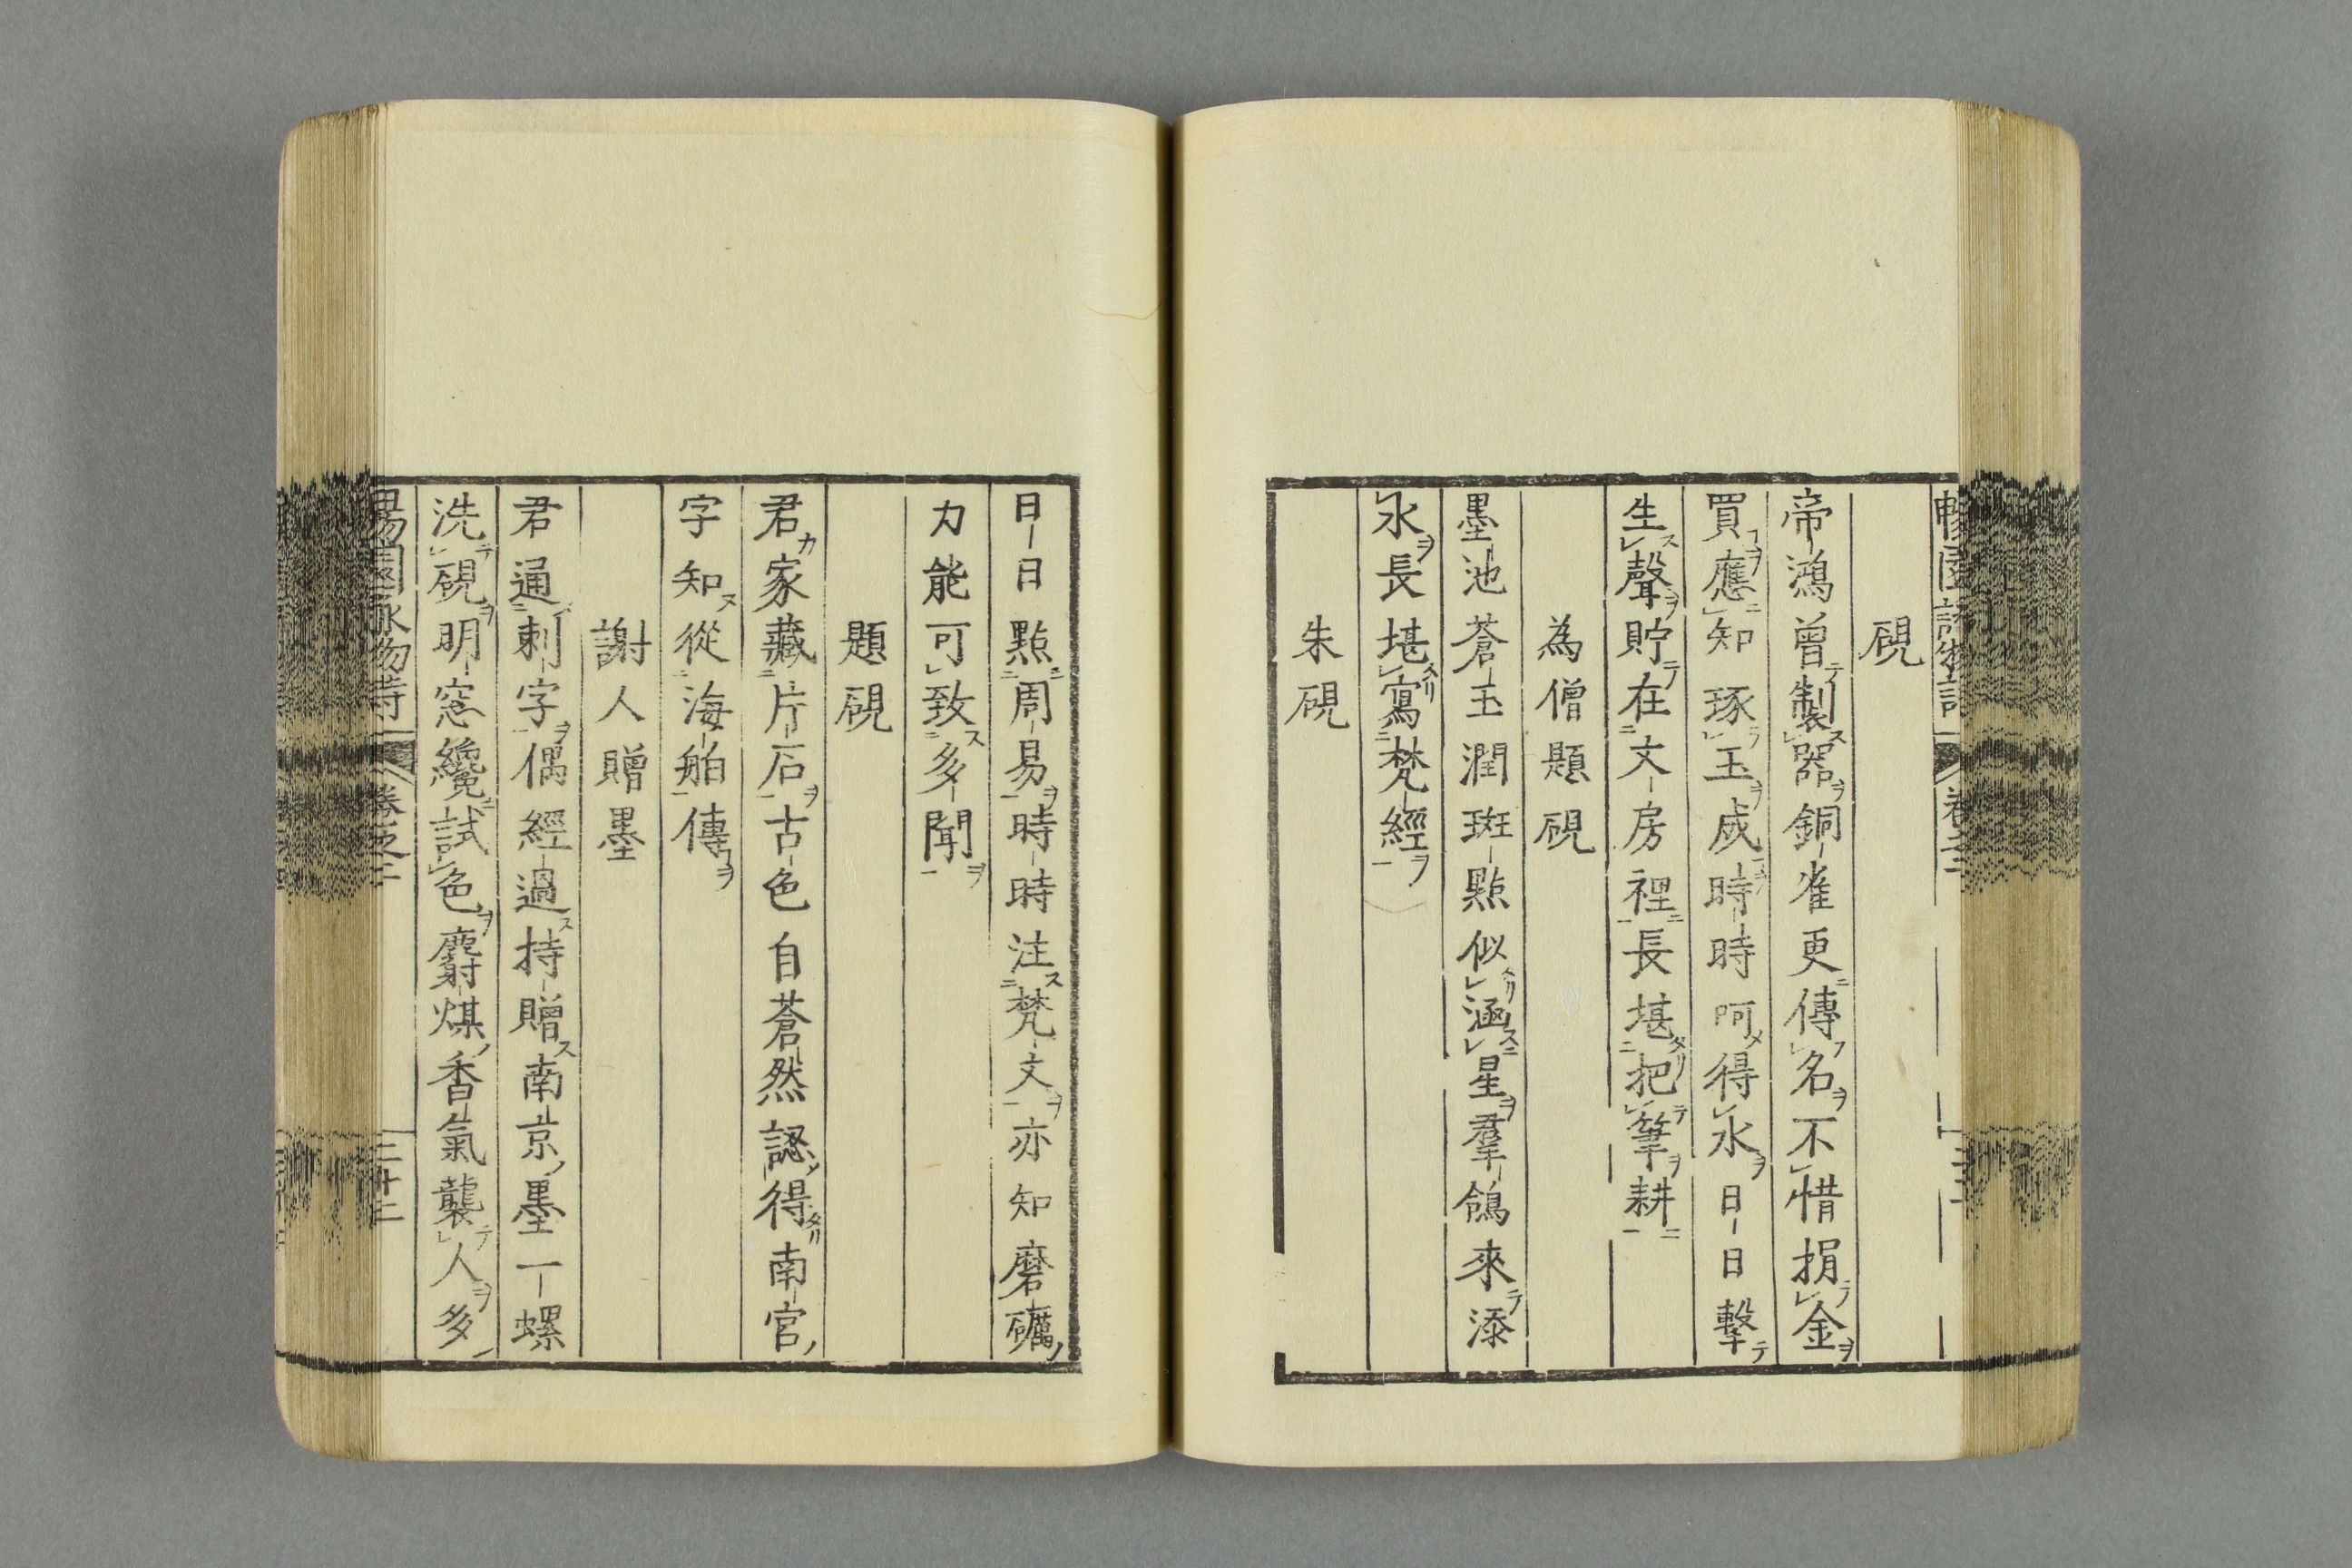 硯
帝鴻曾製器銅雀更傳名不惜捐金
買應知琢玉成時時呵得水日日擊
生聲貯在文房裡長堪把筆耕
為僧題硯
墨池蒼玉潤斑點似涵星羣鴿來添
水長堪寫梵經
朱硯
日日點周易時時注梵文亦知磨礪
力能可致多聞
題硯
君家藏片石古色自蒼然認得南宮
字知從海舶傳
謝人贈墨
君通刺字偶經過持贈南京墨一螺
洗硯明窓纔試色麝煤香氣襲人多